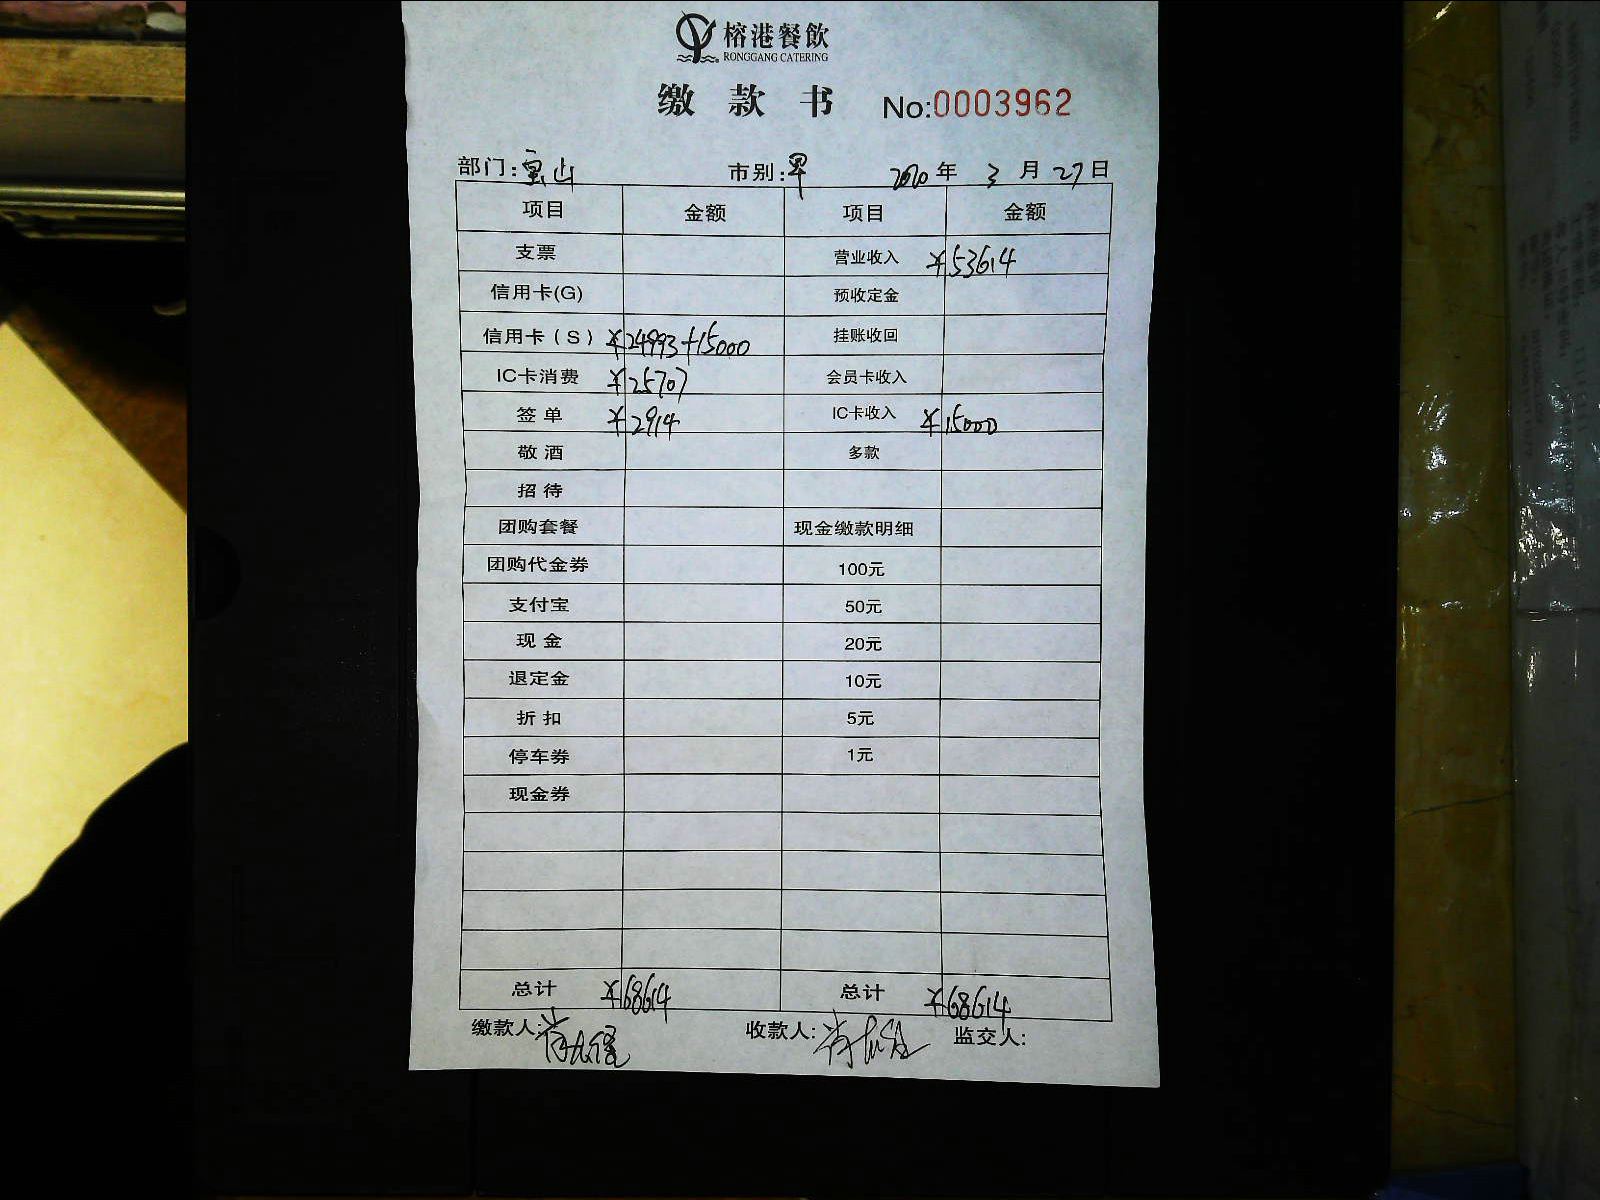 榕港餐飲
RONGGANG CATERING
缴 款 书 No:0003962
部门:宝山 市别:早 2020年 3月27日
项目 金额 项目 金额
支票 营业收入 ¥53614
信用卡(G) 预收定金
信用卡(S) ¥24993+15000 挂账收回
IC卡消费 ¥25707 会员卡收入
签单 ¥2914 IC卡收入 ¥15000
敬酒 多款
招待
团购套餐 现金缴款明细
团购代金券 100元
支付宝 50元
现金 20元
退定金 10元
折扣 5元
停车券 1元
现金券
总计 ¥68614 总计 ¥68614
缴款人: 收款人: 监交人: